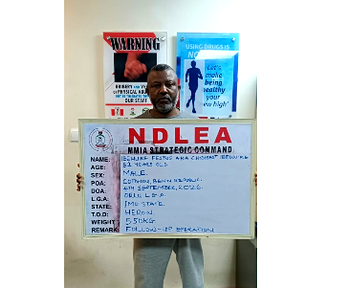 WARNING
BRIBERY
PHYSICAL
OUR STAFF
USING DRUGS IS
NO
Let's
make
being
healthy
your new
high"
NDLEA
MMIA STRATEGIC COMMAND
NAME: FESTUS AKA
AGE: 52 YEARS OLD
SEX: MALE
POA: COTONOU, BENIN REPUBLIC
DOA: SEPTEMBER,
L.G.A: L.G.A
STATE: IMO STATE
T.O.D: HEROIN
WEIGHT: 5.50KG
REMARK: FOLLOW-UP OPERATION